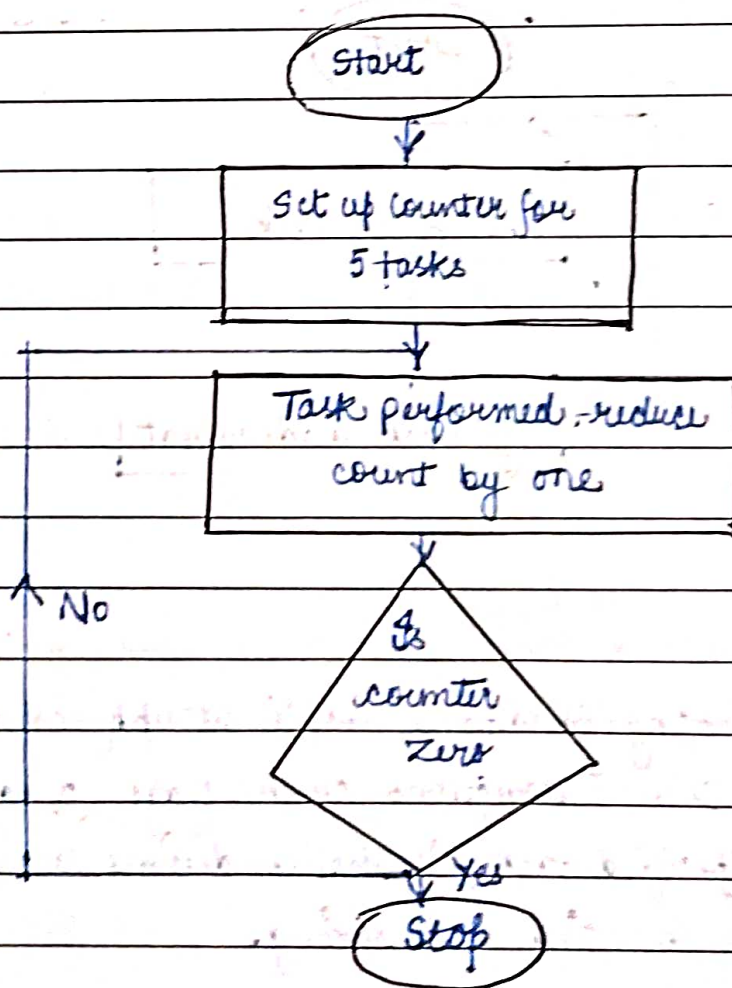 Start
Set up counter for
5 tasks
Task performed.-reduce
count by one
No
Is
counter
Zero
Yes
Stop